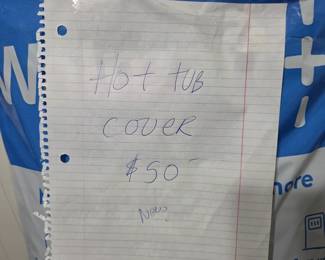 W
Hot tub
cover
$50
ore